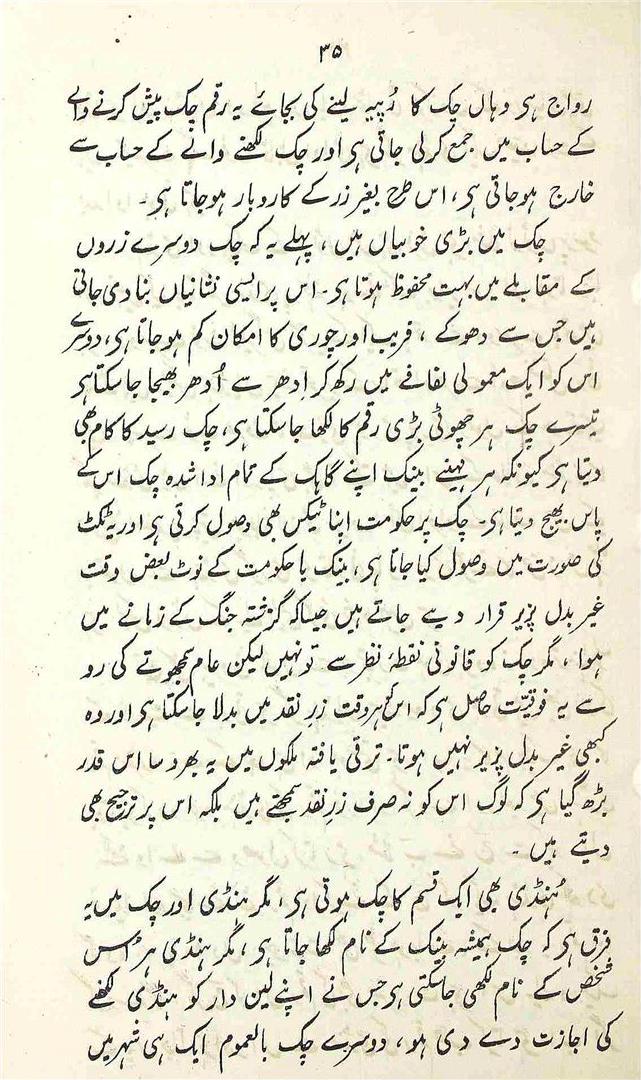 ۳۵
رواج ہی وہاں چک کا رُپیہ لینے کی بجائے یہ رقم چک پیش کرنے والے
کے حساب میں جمع کرلی جاتی ہی اور چک لکھنے والے کے حساب سے
خارج ہوجاتی ہی، اس طرح بغیر زر کے کاروبار ہوجاتا ہی۔
چک میں بڑی خوبیاں ہیں، پہلے یہ کہ چک دوسرے زروں
کے مقابلے میں بہت محفوظ ہوتا ہی۔ اس پر ایسی نشانیاں بنادی جاتی
ہیں جس سے دھوکے، فریب اور چوری کا امکان کم ہوجاتا ہی، دوسرے
اس کو ایک معمولی لفافے میں رکھ کر اِدھر سے اُدھر بھیجا جاسکتا ہی
تیسرے چک ہر چھوٹی بڑی رقم کا لکھا جاسکتا ہی، چک رسید کا کام بھی
دیتا ہی کیونکہ ہر مہینے بینک اپنے گاہک کے تمام ادا شدہ چک اس کے
پاس بھیج دیتا ہی۔ چک پر حکومت اپنا ٹیکس بھی وصول کرتی ہی اور یہ ٹکٹ
کی صورت میں وصول کیا جاتا ہی، بینک یا حکومت کے نوٹ بعض وقت
غیر بدل پزیر قرار دیے جاتے ہیں جیسا کہ گزشتہ جنگ کے زمانے میں
ہوا، مگر چک کو قانونی نقطۂ نظر سے تو نہیں لیکن عام سمجھوتے کی رو
سے یہ فوقیّت حاصل ہی کہ اس کو ہر وقت زرِ نقد میں بدلا جاسکتا ہی اور وہ
کبھی غیر بدل پزیر نہیں ہوتا۔ ترقی یافتہ ملکوں میں یہ بھروسا اس قدر
بڑھ گیا ہی کہ لوگ اس کو نہ صرف زرِ نقد سمجھتے ہیں بلکہ اس پر ترجیح بھی
دیتے ہیں۔
ہُنڈی بھی ایک قسم کا چک ہوتی ہی، مگر ہنڈی اور چک میں یہ
فرق ہی کہ چک ہمیشہ بینک کے نام لکھا جاتا ہی، مگر ہنڈی ہر اس
شخص کے نام لکھی جاسکتی ہی جس نے اپنے لین دار کو ہنڈی لکھنے
کی اجازت دے دی ہو، دوسرے چک بالعموم ایک ہی شہر میں